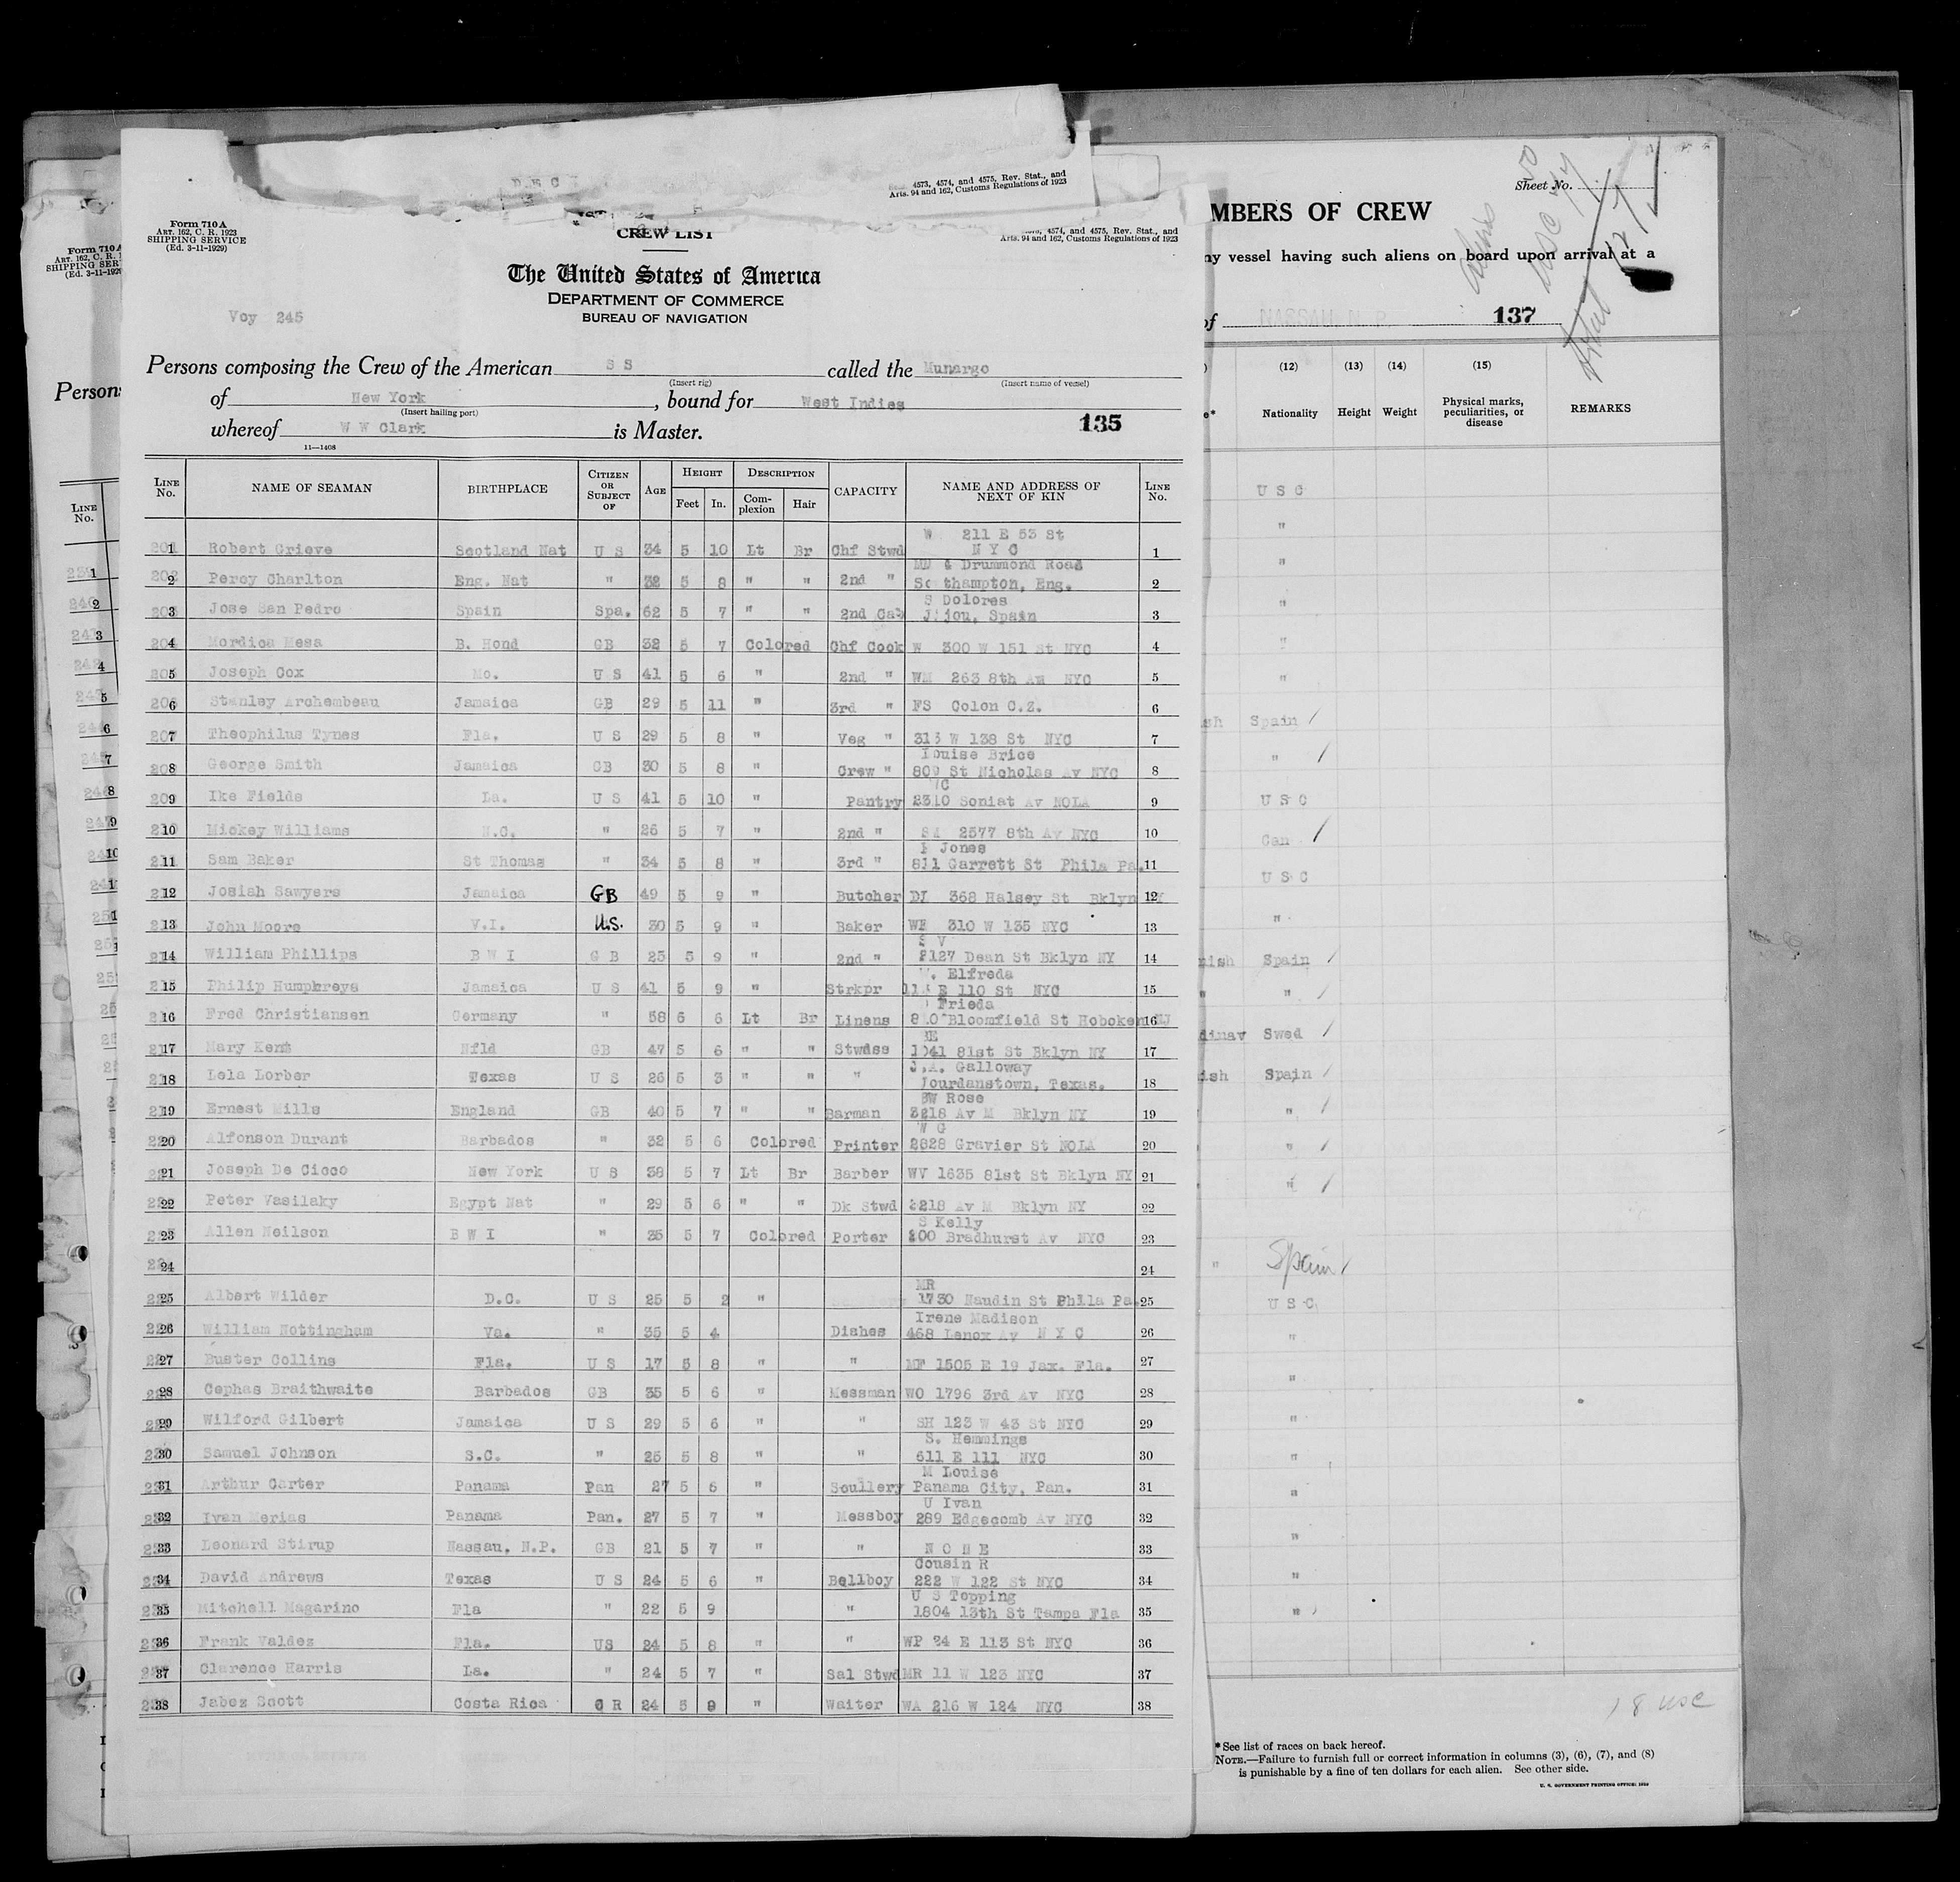 DEC
4573, 4574, and 4575, Rev. Stat., and
Arts. 94 and 162, Customs Regulations of 1923
Form 710 A
ART. 162, C. R. 1923
SHIPPING SERVICE
(Ed. 3-11-1929)
CREW LIST
4574, and 4575, Rev. Stat., and
Arts. 94 and 162, Customs Regulations of 1923
The United States of America
DEPARTMENT OF COMMERCE
BUREAU OF NAVIGATION
Voy 245
Persons composing the Crew of the American S S called the Munargo
(Insert rig) (Insert name of vessel)
of New York, bound for West Indies
(Insert hailing port)
whereof W W Clark is Master. 135
11—1408
LINE No. NAME OF SEAMAN BIRTHPLACE CITIZEN OR SUBJECT OF AGE HEIGHT Feet In. DESCRIPTION Complexion Hair CAPACITY NAME AND ADDRESS OF NEXT OF KIN LINE No.
W 211 E 53 St
1 Robert Grieve Scotland Nat U S 34 5 10 Lt Br Chf Stwd N Y C 1
4 Drummond Road
2 Percy Charlton Eng. Nat " 32 5 8 " " 2nd " Southampton, Eng. 2
S Dolores
3 Jose San Pedro Spain Spa. 62 5 7 " " 2nd Spain 3
4 Mordica Mesa B. Hond GB 32 5 7 Colored Chf Cook W 300 W 151 St NYC 4
5 Joseph Cox Mo. U S 41 5 6 " 2nd " WM 263 8th NYC 5
6 Stanley Archembeau Jamaica GB 29 5 11 " 3rd " FS Colon C.Z. 6
7 Theophilus Tynes Fla. U S 29 5 8 " Veg " 313 W 138 St NYC 7
Louise Brice
8 George Smith Jamaica GB 30 5 8 " Crew " 809 St Nicholas Av NYC 8
9 Ike Fields La. U S 41 5 10 " Pantry 2310 Soniat Av NOLA 9
10 Mickey Williams N.C. " 26 5 7 " 2nd " 2577 8th Av NYC 10
Jones
11 Sam Baker St Thomas " 34 5 8 " 3rd " 811 Garrett St Phila Pa. 11
12 Josiah Sawyers Jamaica GB 49 5 9 " Butcher 368 Halsey St Bklyn 12
13 John Moore V.I. U.S. 30 5 9 " Baker 310 W 135 NYC 13
S V
14 William Phillips B W I G B 25 5 9 " 2nd " 2127 Dean St Bklyn NY 14
W. Elfreda
15 Philip Humphreys Jamaica U S 41 5 9 " Strkpr E 110 St NYC 15
Frieda
16 Fred Christiansen Germany " 58 6 6 Lt Br Linens Bloomfield St Hoboken NJ 16
17 Mary Kent Nfld GB 47 5 6 " " Stwdss 1041 81st St Bklyn NY 17
J.A. Galloway
18 Lela Lorber Texas U S 26 5 3 " " " Jourdanstown, Texas. 18
Rose
19 Ernest Mills England GB 40 5 7 " " Barman 3218 Av M Bklyn NY 19
W G
20 Alfonson Durant Barbados " 32 5 6 Colored Printer 2828 Gravier St NOLA 20
21 Joseph De Cicco New York U S 38 5 7 Lt Br Barber WV 1635 81st St Bklyn NY 21
22 Peter Vasilaky Egypt Nat " 29 5 6 " " Dk Stwd 3218 Av M Bklyn NY 22
S Kelly
23 Allen Neilson B W I " 35 5 7 Colored Porter 200 Bradhurst Av NYC 23
24 24
MR
25 Albert Wilder D.C. U S 25 5 2 " 1730 Naudin St Phila Pa. 25
Irene Madison
26 William Nottingham Va. " 35 5 4 Dishes 468 Lenox Av N Y C 26
27 Buster Collins Fla. U S 17 5 8 " " MF 1505 E 19 Jax. Fla. 27
28 Cephas Braithwaite Barbados GB 35 5 6 " Messman WO 1796 3rd Av NYC 28
29 Wilford Gilbert Jamaica U S 29 5 6 " " SH 123 W 43 St NYC 29
S. Hemmings
30 Samuel Johnson S.C. " 25 5 8 " " 511 E 111 NYC 30
M Louise
31 Arthur Carter Panama Pan 27 5 6 " Scullery Panama City, Pan. 31
U Ivan
32 Ivan Merias Panama Pan. 27 5 7 " Messboy 289 Edgecomb Av NYC 32
33 Leonard Stirup Nassau, N.P. GB 21 5 7 " " N O N E 33
Cousin R
34 David Andrews Texas U S 24 5 6 " Bellboy 222 W 122 St NYC 34
U S Topping
35 Mitchell Magarino Fla " 22 5 9 " 1804 13th St Tampa Fla 35
36 Frank Valdez Fla. US 24 5 8 " " WP 24 E 113 St NYC 36
37 Clarence Harris La. " 24 5 7 " Sal Stwd MR 11 W 123 NYC 37
38 Jabez Scott Costa Rica C R 24 5 9 " Waiter WA 216 W 124 NYC 38
Sheet No.
MBERS OF CREW
ny vessel having such aliens on board upon arrival at a
of NASSAU N P 137
Aliens 50
USC 77
Total 127
(12) (13) (14) (15)
Nationality Height Weight Physical marks, peculiarities, or disease REMARKS
U S C
"
"
"
"
"
Spain /
" /
U S C
Can /
U S C
"
nish Spain /
" " /
dinav Swed /
ish Spain /
" /
" /
" /
" Spain /
U S C
"
"
"
"
"
"
"
"
18 USC
* See list of races on back hereof.
NOTE.—Failure to furnish full or correct information in columns (3), (6), (7), and (8)
is punishable by a fine of ten dollars for each alien. See other side.
U. S. GOVERNMENT PRINTING OFFICE: 1929
Form 710 A
ART. 162, C. R.
SHIPPING SER
(Ed. 3-11-1929
Persons
LINE No.